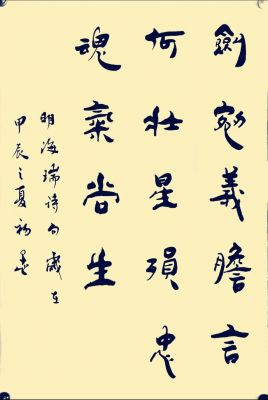 劍剜義膽言
何壯星殞忠
魂氣尚生
明海瑞诗句歲在
甲辰之夏初